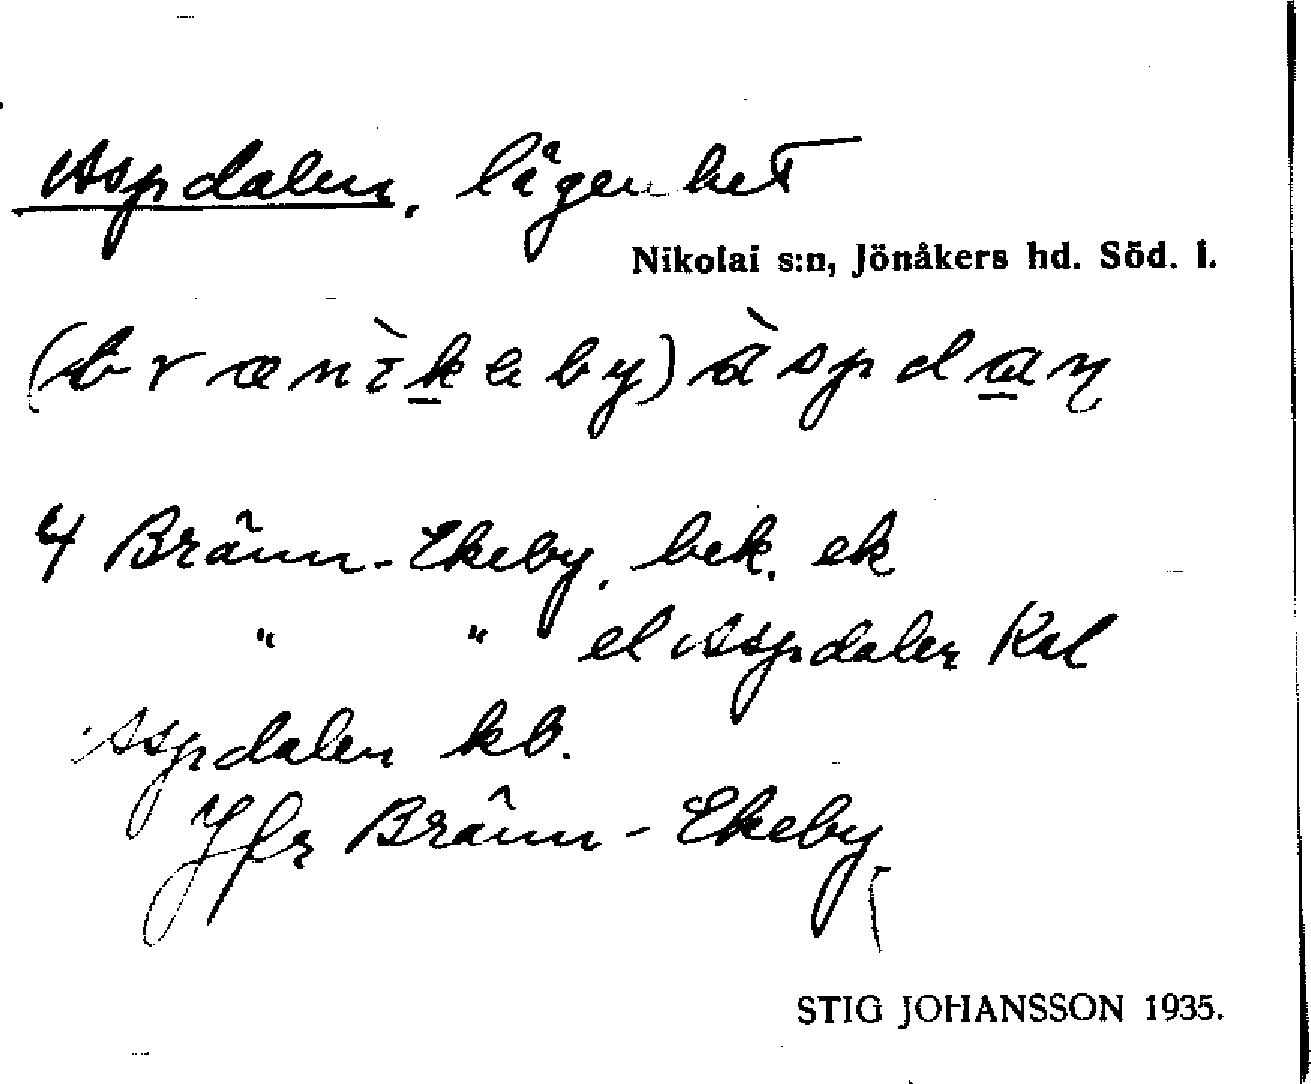 Aspdalen, lägenhet
Nikolai s:n, Jönåkers hd. Söd. l.
(brænìkeby) àspdaṇ
4 Bränn-Ekeby, bek. ek
" " el Aspdalen Kal
Aspdalen kb.
Jfr Bränn-Ekeby
STIG JOHANSSON 1935.